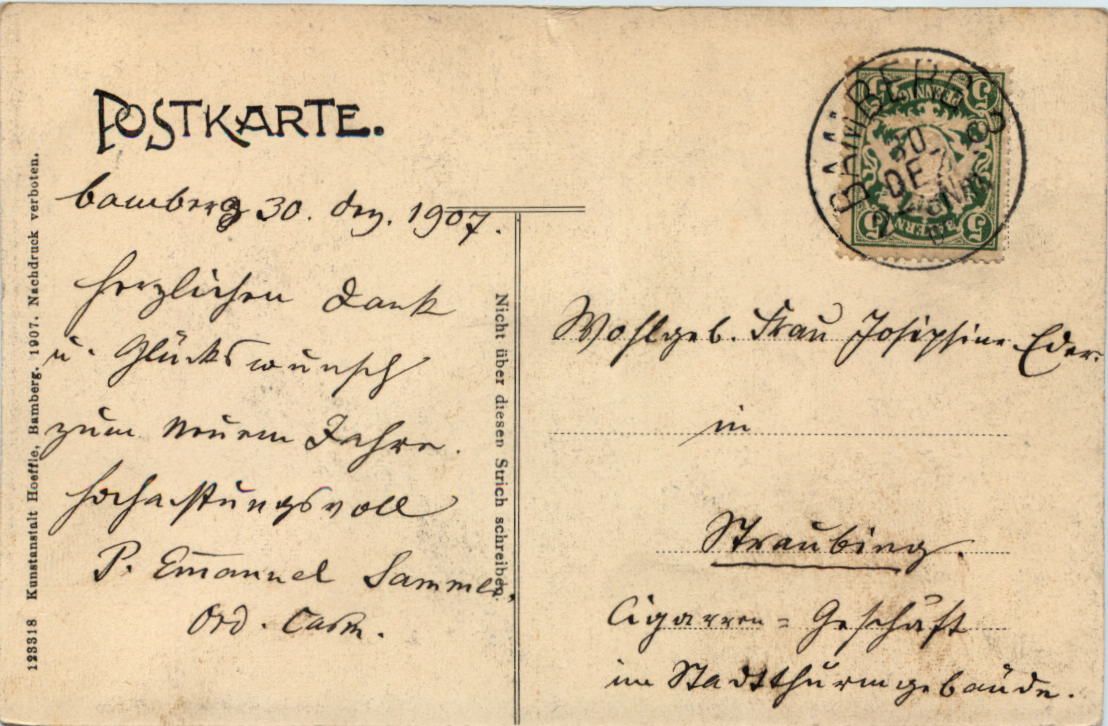 POSTKARTE.
Bamberg 30. Dez. 1907.
Herzlichen Dank
u. Glückswunsch
zum neuem Jahre.
Hochachtungsvoll
P. Emanuel Sammer,
Ord. Carm.
123318 Kunstanstalt Hoeffle, Bamberg. 1907. Nachdruck verboten.
Nicht über diesen Strich schreiben.
BAMBERG
30
DE
5 5
5 5
BAYERN
Wohlgeb. Frau Josephine Eder.
in
Straubing.
Cigarren=Geschäft
im Stadtthurmgebäude.